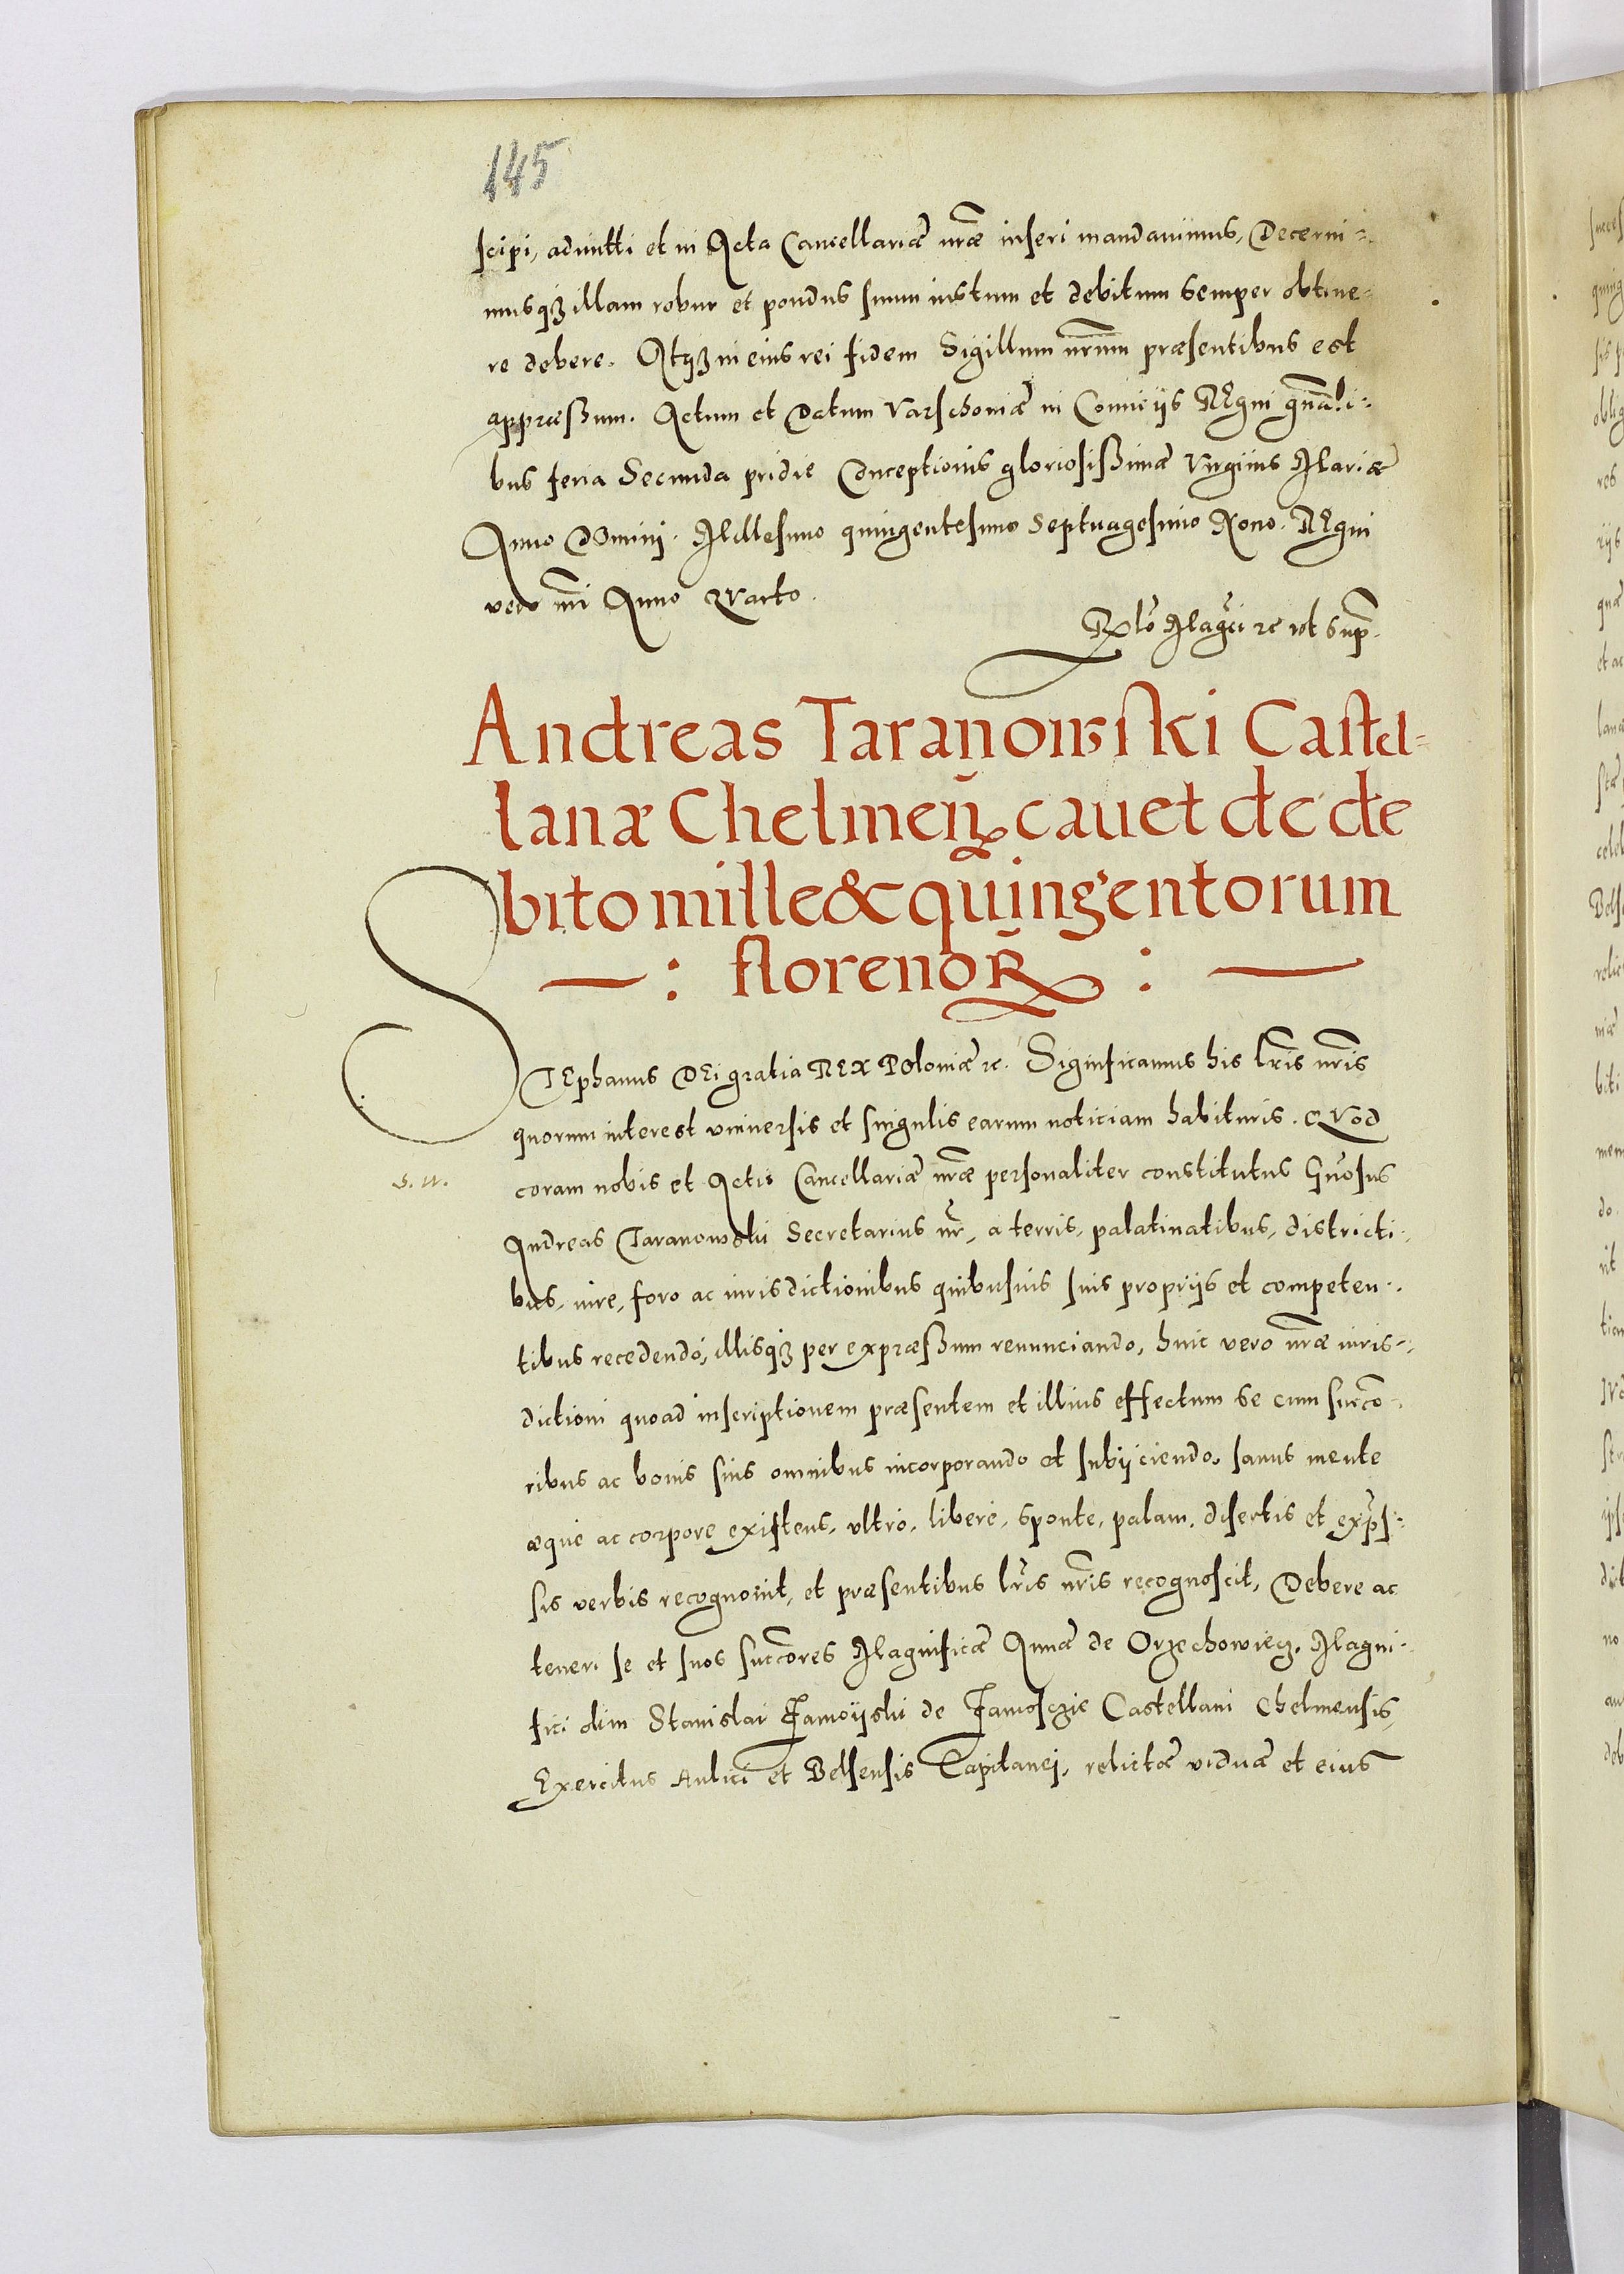 145
scipi, admitti et in Acta Cancellariæ nræ inseri mandavimus, Decerni-
musq3 illam robur et pondus suum iustum et debitum semper obtine-
re debere. Atq3 in eius rei fidem Sigillum nrum præsentibus est
appræssum. Actum et Datum Varschoviæ in Comicijs REgni gnali-
bus feria Secunda pridie Conceptionis gloriosissimæ Virginis Mariæ
Anno DOmini. Millesimo quingentesimo Septuagesimo Nono. REgni
vero nri Anno QVarto.
Rlo Magci etc ut sup.
Andreas Taranowski Castel-
lanæ Chelmen. cauet de de
bito mille & quingentorum
— : florenoR : —
STEphanus DEi gratia REX POloniæ etc. Significamus his lris nris
quorum interest vniuersis et singulis earum noticiam habituris. QVod
S. W.
coram nobis et Actis Cancellariæ nræ personaliter constitutus Gnosus
Andreas Taranowski Secretarius nr, a terris, palatinatibus, districti-
bus, iure, foro ac iurisdictionibus quibusuis suis proprijs et competen-
tibus recedendo, illisq3 per expræssum renunciando, huic vero nræ iuris-
dictioni quoad inscriptionem præsentem et illius effectum se cum succo-
ribus ac bonis suis omnibus incorporando et subijciendo, sanus mente
æque ac corpore existens, vltro, libere, sponte, palam, disertis et exps-
sis verbis recognouit, et præsentibus lris nris recognoscit, Debere ac
teneri se et suos succores Magnificæ Annæ de Orzechowiecz, Magni-
fici olim Stanislai Zamoijski de Zamosczie Castellani Chelmensis,
Exercitus Aulici et Belsensis Capitanei, relictæ viduæ et eius